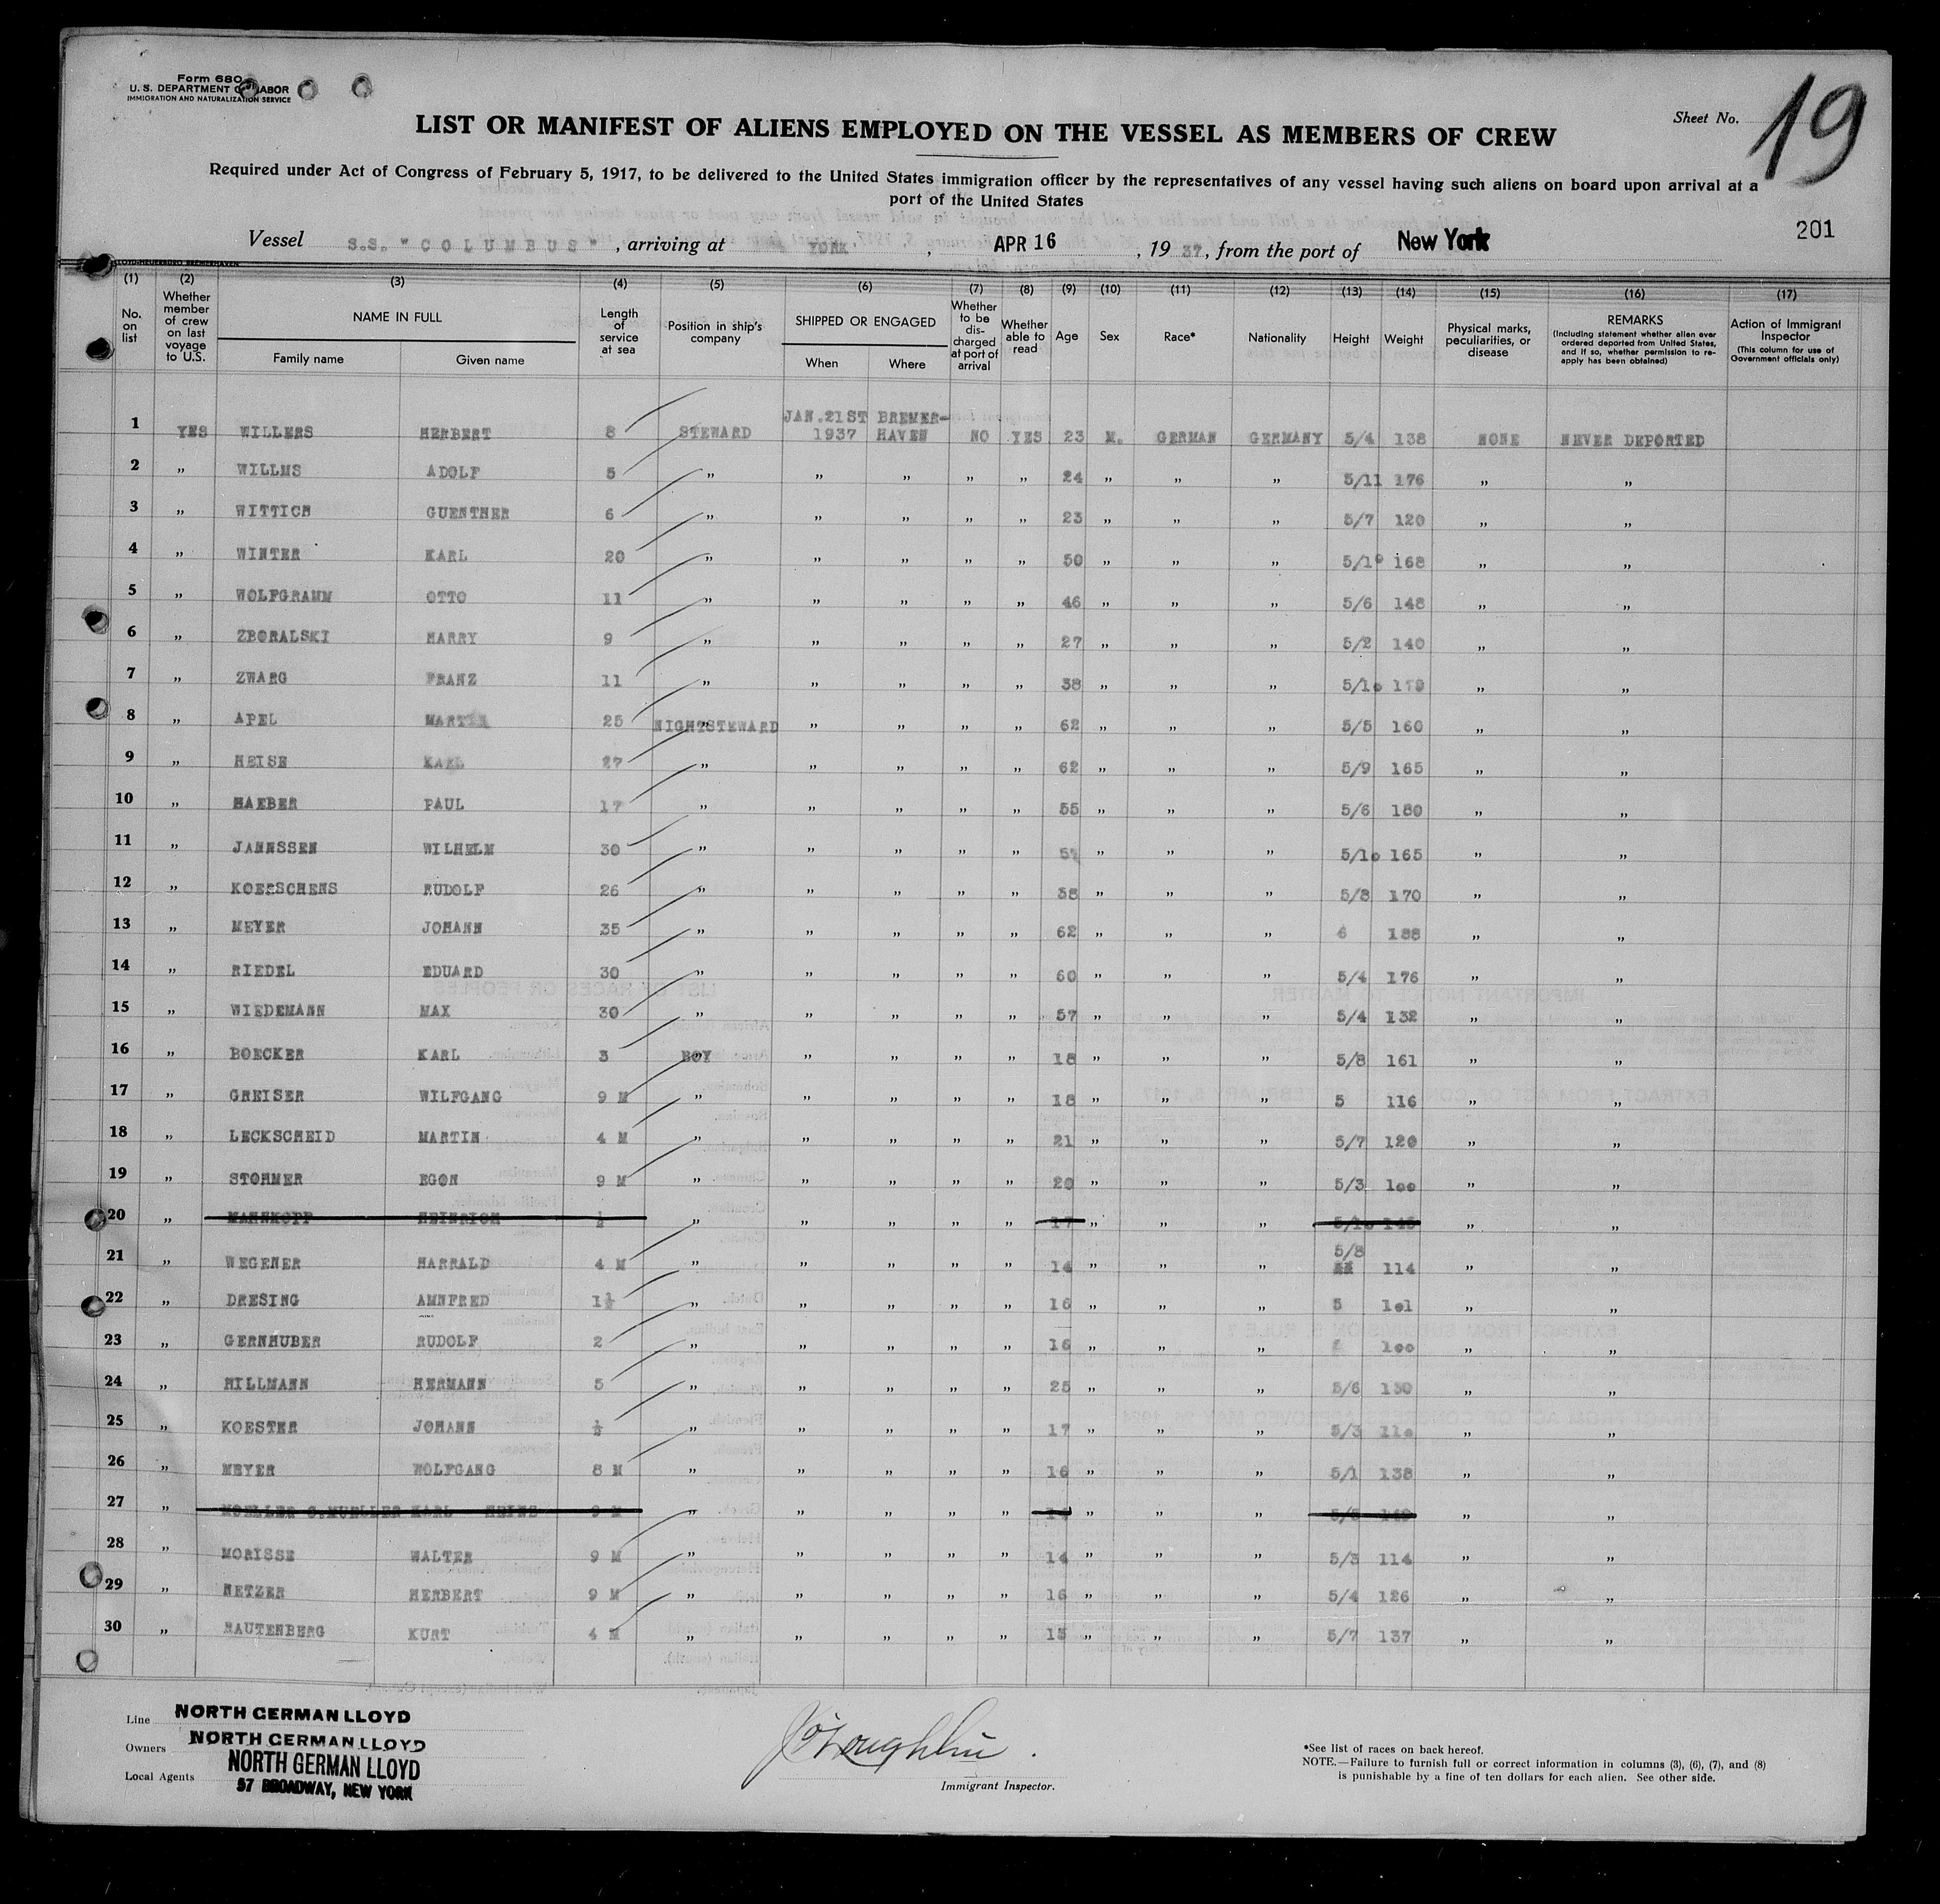 Form 680
U. S. DEPARTMENT OF LABOR
IMMIGRATION AND NATURALIZATION SERVICE
Sheet No. 19
LIST OR MANIFEST OF ALIENS EMPLOYED ON THE VESSEL AS MEMBERS OF CREW
Required under Act of Congress of February 5, 1917, to be delivered to the United States immigration officer by the representatives of any vessel having such aliens on board upon arrival at a
port of the United States
201
Vessel S.S. "COLUMBUS", arriving at YORK, APR 16, 1937, from the port of New York
(1) (2) (3) (4) (5) (6) (7) (8) (9) (10) (11) (12) (13) (14) (15) (16) (17)
No. on list
Whether member of crew on last voyage to U.S.
NAME IN FULL
Family name Given name
Length of service at sea
Position in ship's company
SHIPPED OR ENGAGED
When Where
Whether to be discharged at port of arrival
Whether able to read
Age
Sex
Race*
Nationality
Height
Weight
Physical marks, peculiarities, or disease
REMARKS
(Including statement whether alien ever ordered deported from United States, and if so, whether permission to reapply has been obtained)
Action of Immigrant Inspector
(This column for use of Government officials only)
1 YES WILLERS HERBERT 8 STEWARD JAN.21ST 1937 BREMERHAVEN NO YES 23 M. GERMAN GERMANY 5/4 138 NONE NEVER DEPORTED
2 " WILLMS ADOLF 5 " " " " " 24 " " " 5/11 176 " "
3 " WITTICH GUENTHER 6 " " " " " 23 " " " 5/7 120 " "
4 " WINTER KARL 20 " " " " " 50 " " " 5/10 168 " "
5 " WOLFGRAMM OTTO 11 " " " " " 46 " " " 5/6 148 " "
6 " ZBORALSKI HARRY 9 " " " " " 27 " " " 5/2 140 " "
7 " ZWARG FRANZ 11 " " " " " 38 " " " 5/10 " "
8 " APEL MARTIN 25 NIGHTSTEWARD " " " " 62 " " " 5/5 160 " "
9 " HEISE KARL 27 " " " " " 62 " " " 5/9 165 " "
10 " HAEBER PAUL 17 " " " " " 55 " " " 5/6 180 " "
11 " JANNSSEN WILHELM 30 " " " " " " " " 5/10 165 " "
12 " KOERSCHENS RUDOLF 26 " " " " " 58 " " " 5/8 170 " "
13 " MEYER JOHANN 35 " " " " " 62 " " " 6 188 " "
14 " RIEDEL EDUARD 30 " " " " " 60 " " " 5/4 176 " "
15 " WIEDEMANN MAX 30 " " " " " 57 " " " 5/4 132 " "
16 " BOECKER KARL 3 BOY " " " " 18 " " " 5/8 161 " "
17 " GREISER WILFGANG 9 M " " " " " 18 " " " 5 116 " "
18 " LECKSCHEID MARTIN 4 M " " " " " 21 " " " 5/7 120 " "
19 " STOHMER EGON 9 M " " " " " 20 " " " 5/3 100 " "
20 " MAHNKOPP HEINRICH ½ " " " " " 17 " " " 5/10 145 " "
21 " WEGENER HARRALD 4 M " " " " " 14 " " " 5/8 114 " "
22 " DRESING AMNFRED 1½ " " " " " 16 " " " 5 101 " "
23 " GERNHUBER RUDOLF 2 " " " " " 16 " " " 100 " "
24 " HILLMANN HERMANN 5 " " " " " 25 " " " 5/6 130 " "
25 " KOESTER JOHANN ½ " " " " " 17 " " " 5/3 110 " "
26 " MEYER WOLFGANG 8 M " " " " " 16 " " " 5/1 138 " "
27 " MOELLER G.MUELLER KARL HEINS 9 M " " " " " " " " 5/5 140 " "
28 " MORISSE WALTER 9 M " " " " " 14 " " " 5/3 114 " "
29 " NETZER HERBERT 9 M " " " " " 16 " " " 5/4 126 " "
30 " RAUTENBERG KURT 4 M " " " " " 15 " " " 5/7 137 " "
Line NORTH GERMAN LLOYD
Owners NORTH GERMAN LLOYD
Local Agents NORTH GERMAN LLOYD
57 BROADWAY, NEW YORK
J O'Loughlin
Immigrant Inspector.
*See list of races on back hereof.
NOTE.—Failure to furnish full or correct information in columns (3), (6), (7), and (8)
is punishable by a fine of ten dollars for each alien. See other side.